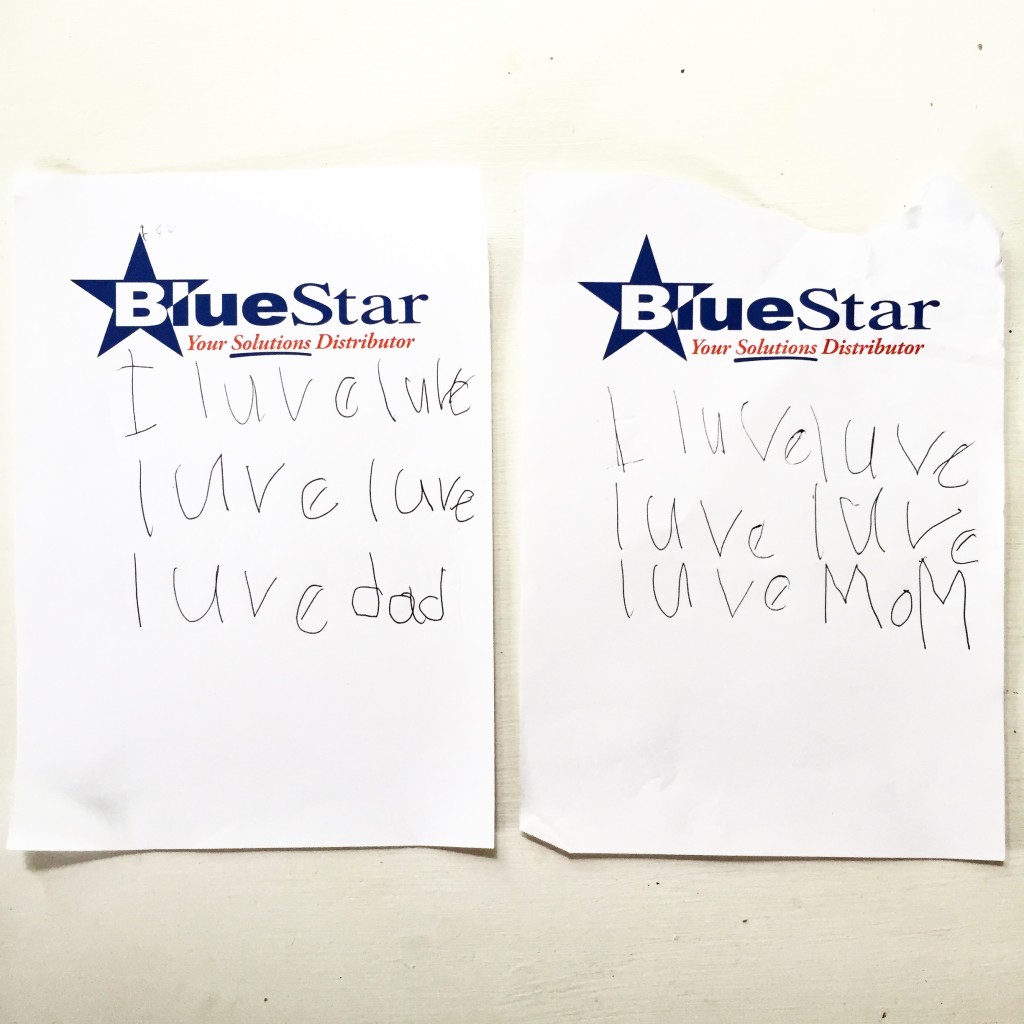 BlueStar
Your Solutions Distributor
I luve luve
luve luve
luve dad
BlueStar
Your Solutions Distributor
I luve luve
luve luve
luve MoM